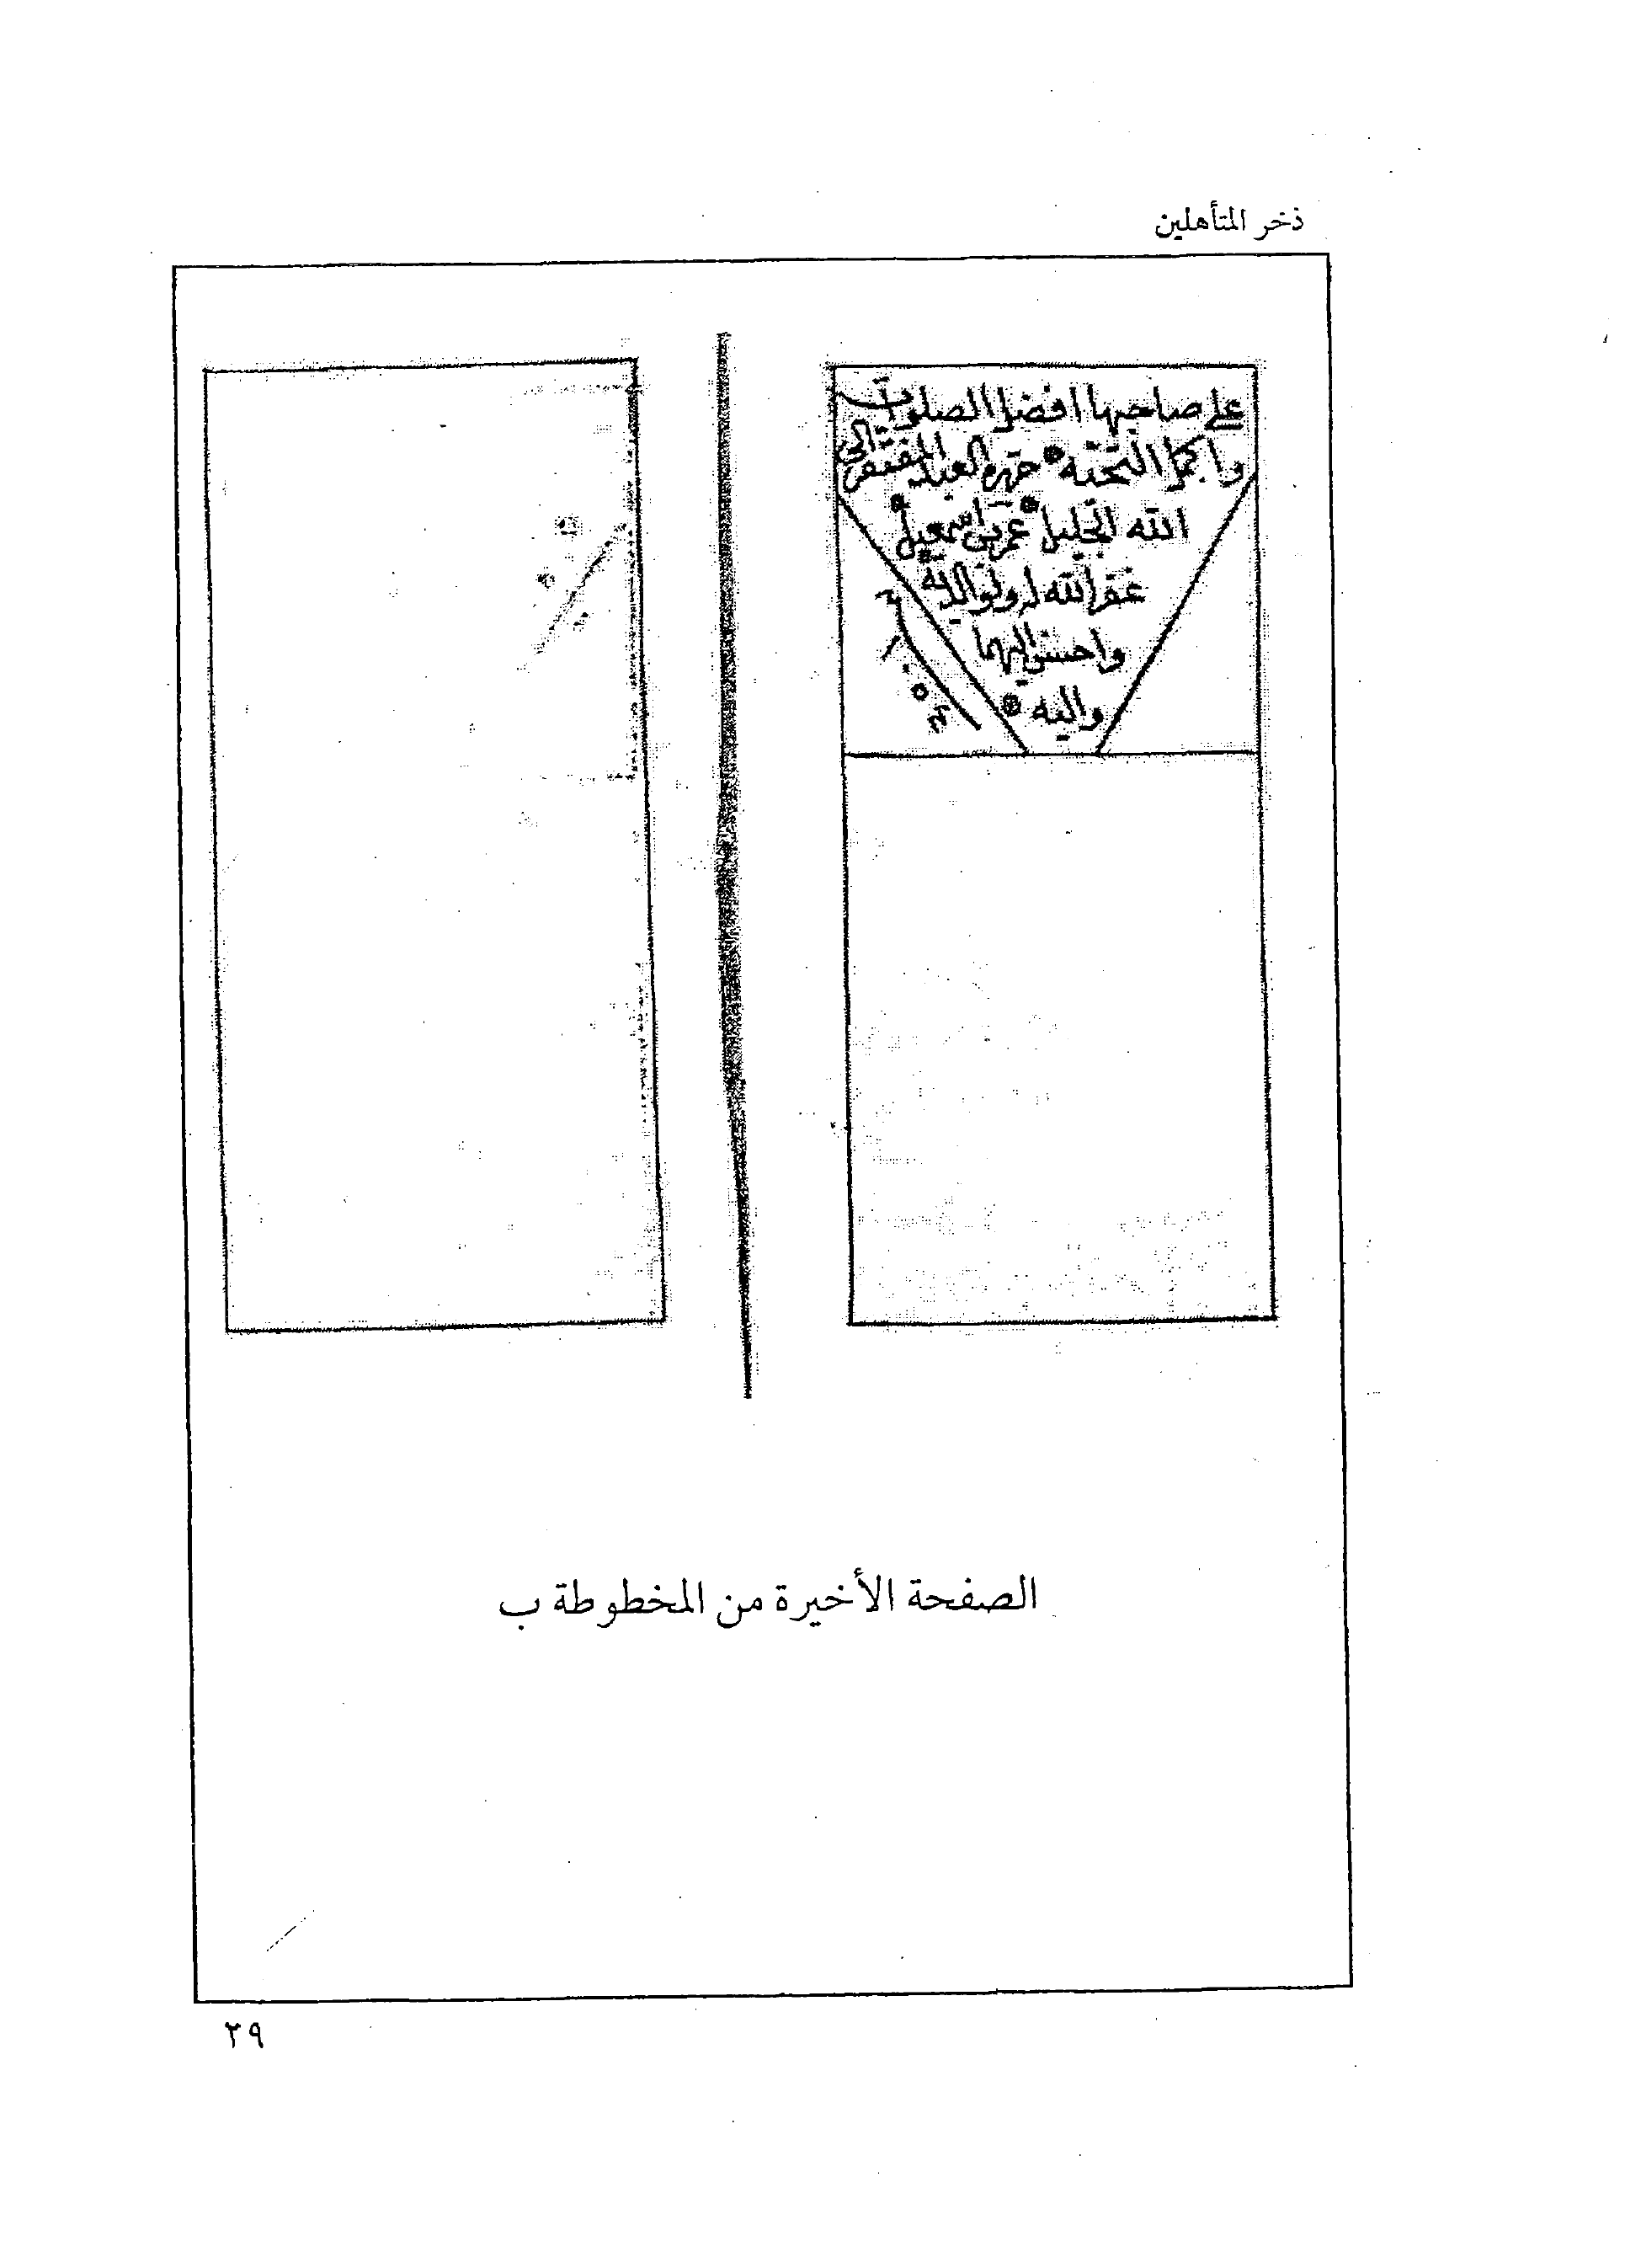 ذخر المتأهلين
على صاحبها افضل الصلوات
واكمل التحية حرره العبد المفتقر الى
الله الجليل عمر بن اسمعيل
غفر الله له ولوالديه
واحسن اليهما
واليه
الصفحة الأخيرة من المخطوطة ب
٢٩